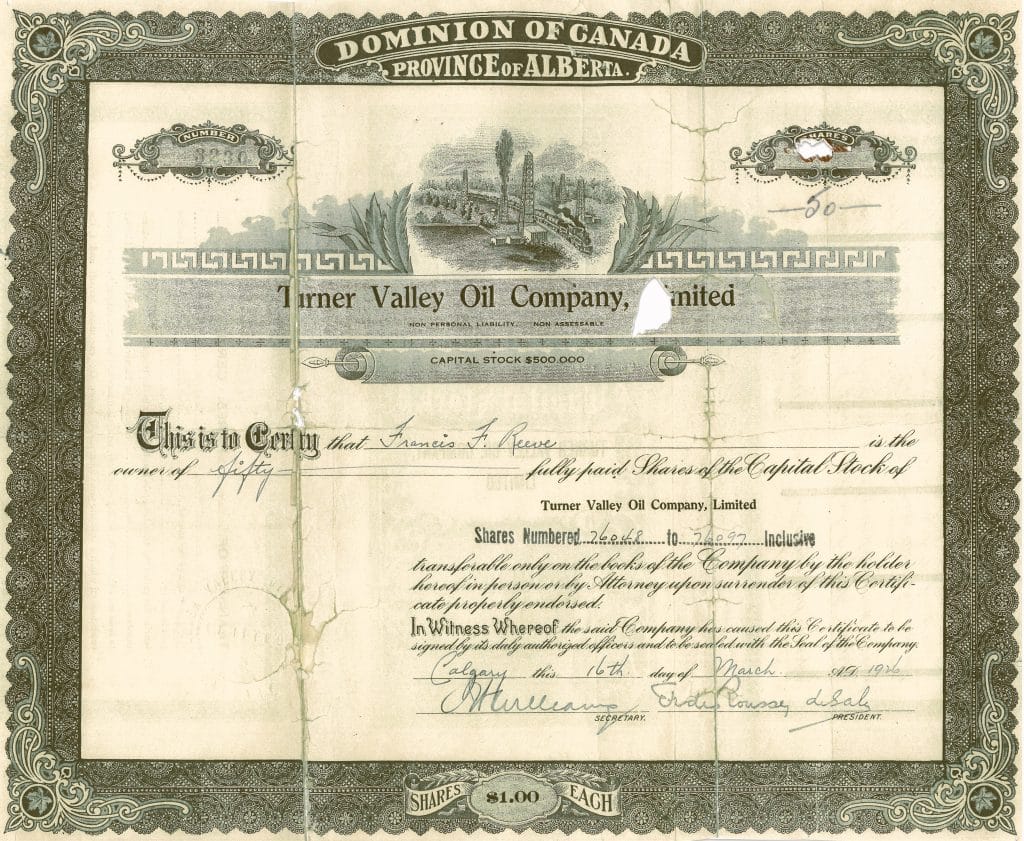 DOMINION OF CANADA
PROVINCE OF ALBERTA.
NUMBER
SHARES
—50—
Turner Valley Oil Company, Limited
NON PERSONAL LIABILITY. NON ASSESSABLE
CAPITAL STOCK $500.000
This is to Certify that Francis F. Reeve is the
owner of fifty fully paid Shares of the Capital Stock of
Turner Valley Oil Company, Limited
Shares Numbered 76048 to 76097 Inclusive
transferable only on the books of the Company by the holder
hereof in person or by Attorney upon surrender of this Certifi-
cate properly endorsed.
In Witness Whereof the said Company has caused this Certificate to be
signed by its duly authorized officers and to be sealed with the Seal of the Company.
Calgary this 16th. day of March. A.D. 1926
SECRETARY.
PRESIDENT.
SHARES $1.00 EACH